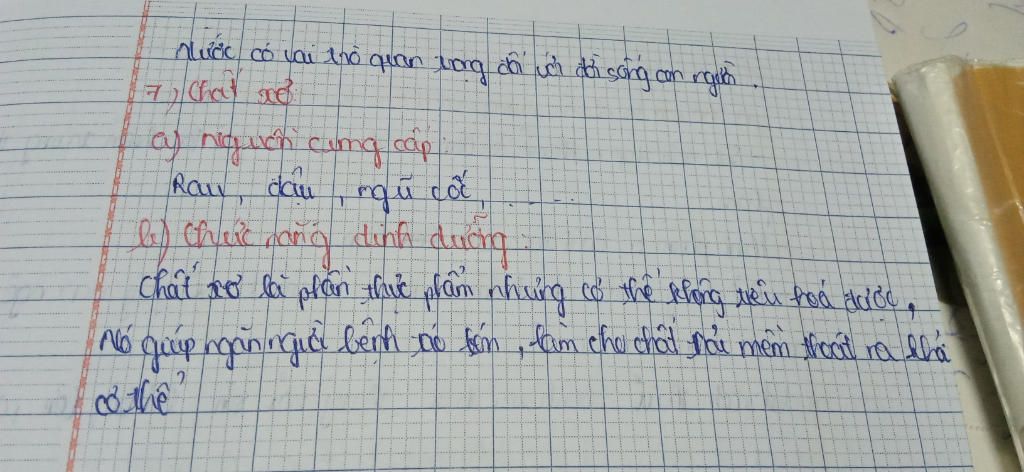 Nước có vai trò quan trọng đối với đời sống con người.
7) Chất xơ
a) nguồn cung cấp:
Rau, đậu, ngũ cốc, .....
b) Chức năng dinh dưỡng:
Chất xơ là phần thực phẩm nhưng cơ thể không tiêu hoá được,
Nó giúp ngăn ngừa bệnh táo bón, làm cho chất thải mềm thoát ra khỏi
cơ thể